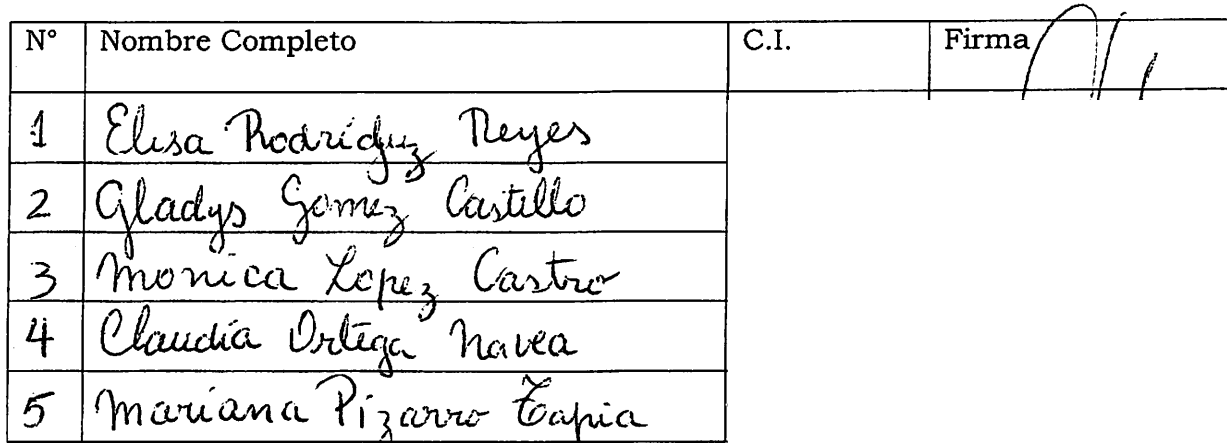 N° Nombre Completo C.I. Firma
1 Elisa Rodríguez Reyes
2 Gladys Gomez Castillo
3 Monica Lopez Castro
4 Claudia Ortega Navea
5 Mariana Pizarro Tapia